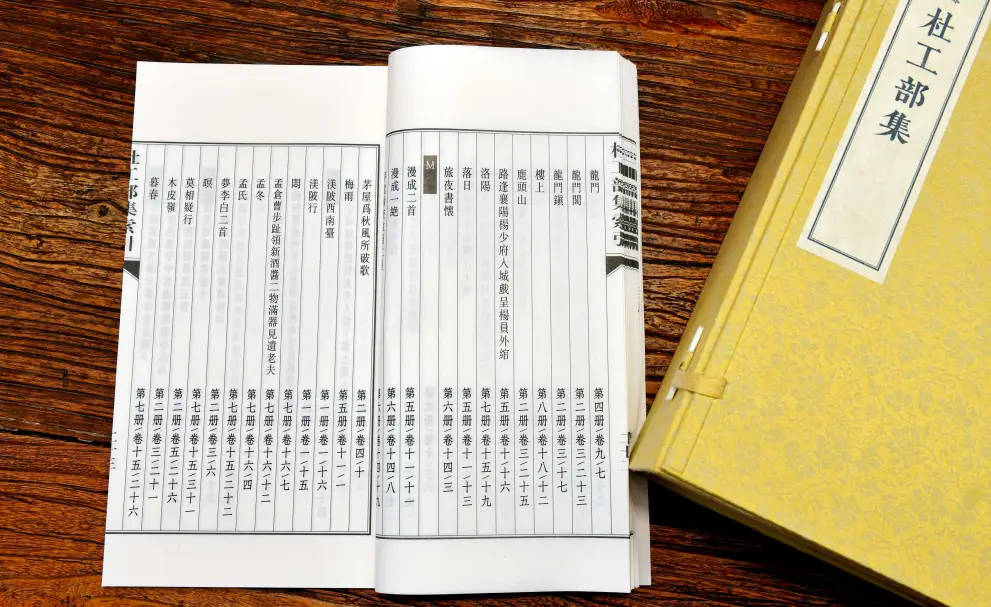 杜工部集
杜工部集索引
龍門 第四册〈卷九〉七
龍門閣 第二册〈卷三〉二十七
龍門鎮 第二册〈卷三〉二十七
樓上 第八册〈卷十八〉十二
鹿頭山 第二册〈卷三〉二十五
路逢襄陽楊少府入城戲呈楊員外綰 第五册〈卷十〉十六
洛陽 第七册〈卷十五〉十九
落日 第五册〈卷十一〉十三
旅夜書懷 第六册〈卷十四〉三
M
漫成二首 第五册〈卷十一〉十一
漫成一絶 第六册〈卷十四〉八
茅屋爲秋風所破歌 第二册〈卷四〉十
梅雨 第五册〈卷十一〉一
渼陂西南臺 第一册〈卷一〉十六
渼陂行 第一册〈卷一〉十五
悶 第七册〈卷十六〉七
孟倉曹步趾領新酒醬二物滿器見遺老夫 第七册〈卷十六〉十二
孟冬 第七册〈卷十六〉四
孟氏 第七册〈卷十五〉二十二
夢李白二首 第二册〈卷三〉六
暝 第七册〈卷十五〉三十一
莫相疑行 第二册〈卷五〉二十六
木皮嶺 第二册〈卷三〉二十一
暮春 第七册〈卷十五〉二十六
杜工部集索引